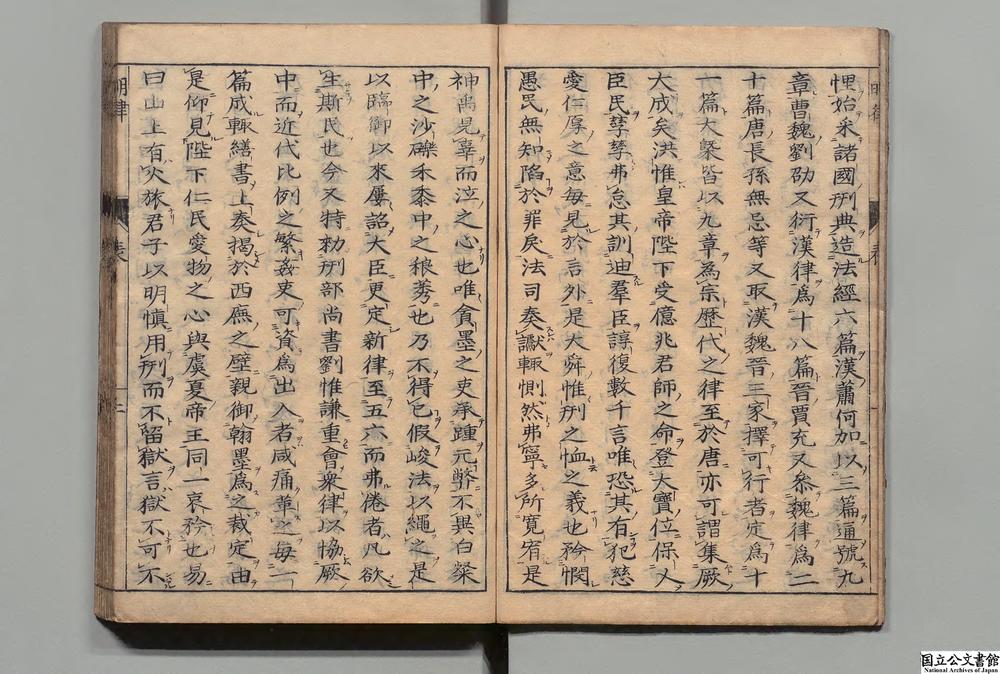 悝始采諸國刑典造法經六篇漢蕭何加以三篇通號九
章曹魏劉劭又衍漢律爲十八篇晉賈充又參魏律爲二
十篇唐長孫無忌等又取漢魏晉三家擇可行者定爲十
一篇大槩皆以九章爲宗歷代之律至於唐亦可謂集厥
大成矣洪惟皇帝陛下受億兆君師之命登大寶位保乂
臣民孳孳弗怠其訓迪羣臣諄復數千言唯恐其有犯慈
愛仁厚之意每見於言外是大舜惟刑之恤之義也矜憫
愚民無知陷於罪戾法司奏讞輒惻然弗寧多所寬宥是
神禹見辜而泣之心也唯貪墨之吏承踵元弊不異白粲
中之沙礫禾黍中之稂莠也乃不得已假峻法以繩之是
以臨御以來屢詔大臣更定新律至五六而弗倦者凡欲
生斯民也今又特勑刑部尚書劉惟謙重會衆律以協厥
中而近代比例之繁姦吏可資爲出入者咸痛革之每一
篇成輒繕書上奏揭於西廡之壁親御翰墨爲之裁定由
是仰見陛下仁民愛物之心與虞夏帝王同一哀矜也易
曰山上有火旅君子以明慎用刑而不留獄言獄不可不
明律
表
三
国立公文書館
National Archives of Japan